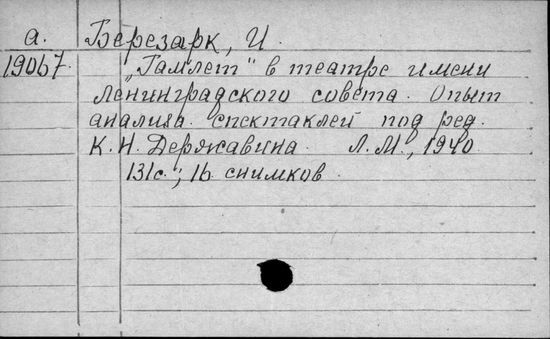 а. Березарк, И.
19067. „Гамлет“ в театре имени
Ленинградского совета. Опыт
анализа спектаклей под ред.
К.Н. Державина. Л.М., 1940
131с.; 16 снимков.